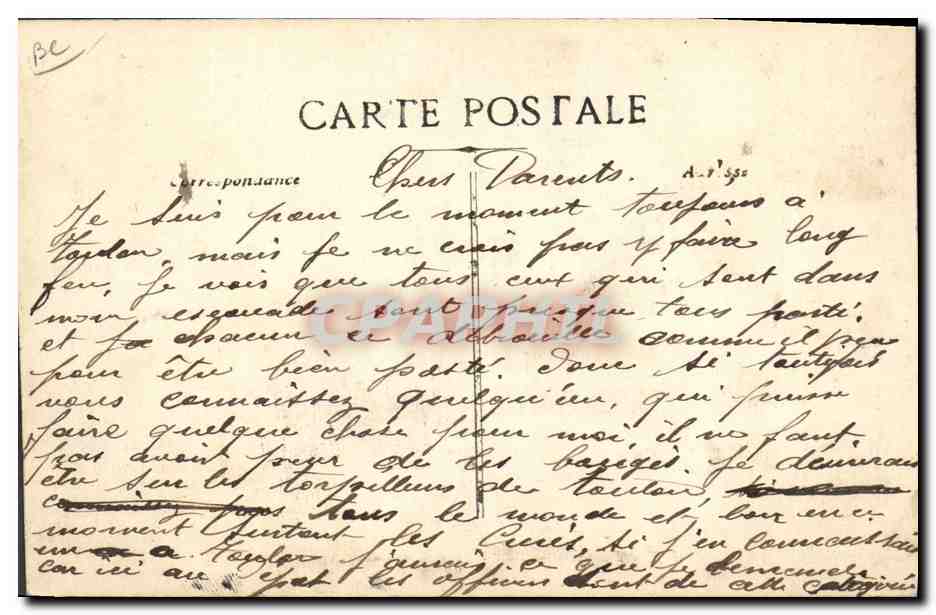 BC
CARTE POSTALE
Correspondance
Chers Parents.
Je suis pour le moment toujours à
toulon, mais je ne crois pas y faire long
feu, je vois que tous ceux qui sont dans
mon escouade sont presque tous parti.
et chacun se débrouille comme il peu
pour être bien posté. donc si toutefois
vous connaissez quelqu'un, qui puisse
faire quelque chose pour moi, il ne faut.
pas avoir peur de les bouger. je désirerais
être sur les torpilleurs de toulon,
tous le monde est bon en ce
moment surtout les Curés, si j'en connaissais
un a toulon j'aurais ce que je demande
car ici les officiers sont de cette catégorie
CPARHII